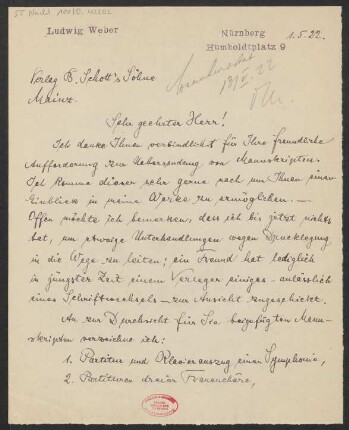 55 Nachl 100/D,
Ludwig Weber
Nürnberg
Humboldtplatz 9
1.5.22.
Verlag B. Schott's Söhne
Mainz.
Sehr geehrter Herr!
Ich danke Ihnen verbindlichst für Ihre freundliche
Aufforderung zur Uebersendung von Manuskripten.
Ich komme dieser sehr gerne nach um Ihnen einen
Einblick in meine Werke zu ermöglichen. —
Offen möchte ich bemerken, dass ich bis jetzt nichts
tat, um etwaige Unterhandlungen wegen Drucklegung
in die Wege zu leiten; ein Freund hat lediglich
in jüngster Zeit einem Verleger einiges – anlässlich
eines Schriftwechsels – zur Ansicht zugeschickt.
An zur Durchsicht für Sie beigefügten Manu-
skripten verzeichne ich:
1. Partitur und Klavierauszug einer Symphonie,
2. Partituren dreier Frauenchöre,